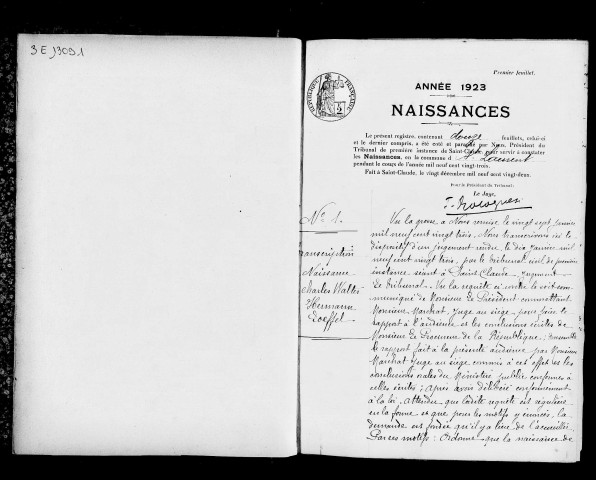 3 E 13091
Premier feuillet.
ANNÉE 1923
NAISSANCES
RÉPUBLIQUE FRANÇAISE
Le présent registre, contenant douze feuillets, celui-ci
et le dernier compris, a été coté et paraphé par Nous, Président du
Tribunal de première instance de Saint-Claude, pour servir à constater
les Naissances, en la commune de St Laurent
pendant le cours de l'année mil neuf cent vingt-trois.
Fait à Saint-Claude, le vingt décembre mil neuf cent vingt-deux.
Pour le Président du Tribunal:
Le Juge,
No 1.
Transcription
Naissance
Charles Walter
Hermann
Loeffel
Vu la grosse à Nous remise le vingt sept janvier
mil neuf cent vingt trois, Nous transcrivons ici le
dispositif d'un jugement rendu, le dix janvier mil
neuf cent vingt trois, par le tribunal civil de première
instance séant à Saint Claude. Jugement
Le tribunal. Vu la requête ci contre le soit com-
muniqué de Monsieur Le Président commettant
Monsieur Marchat, Juge au siège pour faire le
rapport à l'audience et les conclusions écrites de
Monsieur Le Procureur de la République; Ensemble
le rapport fait à la présente audience par Monsieur
Marchat Juge au siège commis à cet effet et les
conclusions orales du Ministère public conformes à
celles écrites; Après avoir délibéré conformément
à la loi. Attendu que ladite requête est régulière
en la forme et que pour les motifs y énoncés, la
demande est fondée qu'il y a lieu de l'accueillir.
Par ces motifs: Ordonne que la naissance de